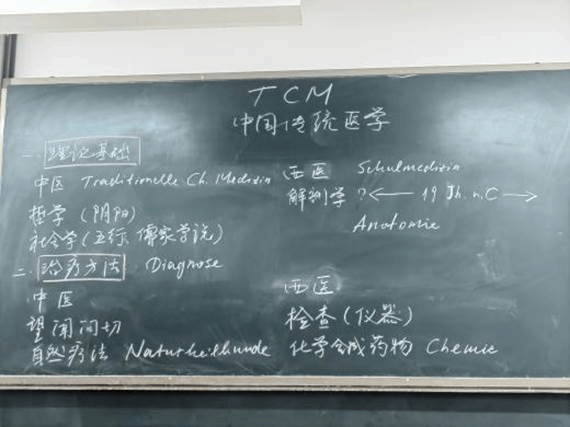 TCM
中国传统医学
一. 理论基础
中医 Traditionelle Ch. Medizin
哲学 (阴阳)
社会学 (五行, 儒家学说)
西医 Schulmedizin
解剖学 ? ← 19 Jh. n.C →
Anatomie
二. 治疗方法 Diagnose
中医
望闻问切
自然疗法 Naturheilkunde
西医
检查 (仪器)
化学合成药物 Chemie